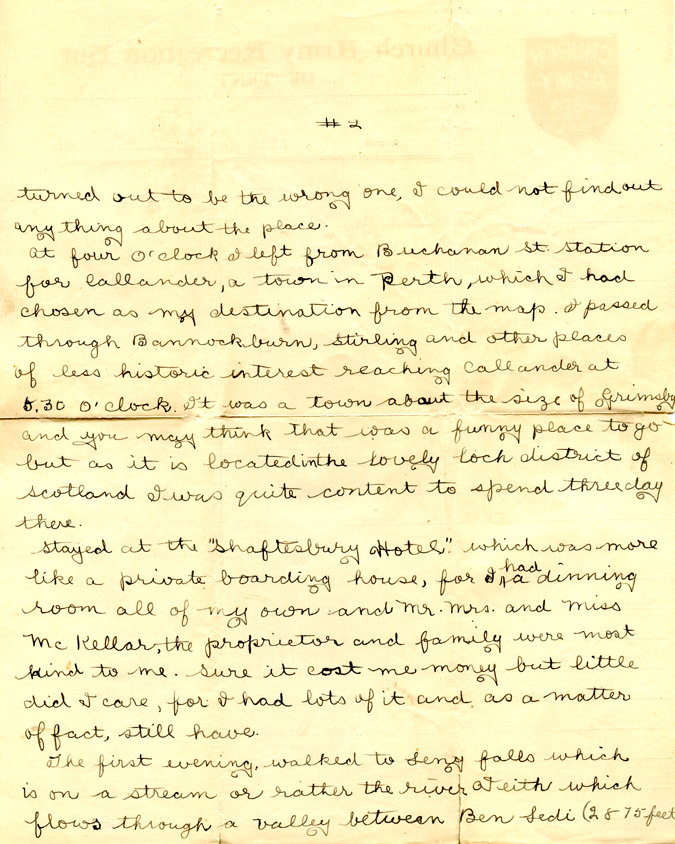 Church Army Recreation Hut
OR TENT
CHURCH
ARMY
# 2
turned out to be the wrong one, I could not find out
any thing about the place.
At four O'clock I left from Buchanan St. Station
for Callander, a town in Perth, which I had
chosen as my destination from the map. I passed
through Bannockburn, Stirling and other places
of less historic interest reaching Callander at
5.30 O'clock. It was a town about the size of Grimsby
and you may think that was a funny place to go
but as it is located in the lovely loch district of
Scotland I was quite content to spend three day
there.
Stayed at the "Shaftesbury Hotel". which was more
like a private boarding house, for I had a dinning
room all of my own and Mr. Mrs. and Miss
McKellar, the proprietor and family were most
kind to me. Sure it cost me money but little
did I care, for I had lots of it and as a matter
of fact, still have.
The first evening, walked to Leny falls which
is on a stream or rather the river Teith which
flows through a valley between Ben Ledi (2875 feet